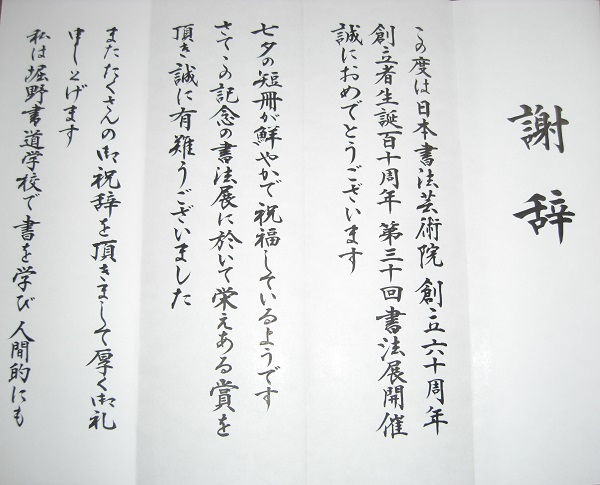 謝辞
この度は日本書法芸術院 創立六十周年
創立者生誕百十周年 第三十回書法展開催
誠におめでとうございます
七夕の短冊が鮮やかで祝福しているようです
さてこの記念の書法展に於いて栄えある賞を
頂き誠に有難うございました
またたくさんの御祝辞を頂きまして厚く御礼
申し上げます
私は堀野書道学校で書を学び 人間的にも